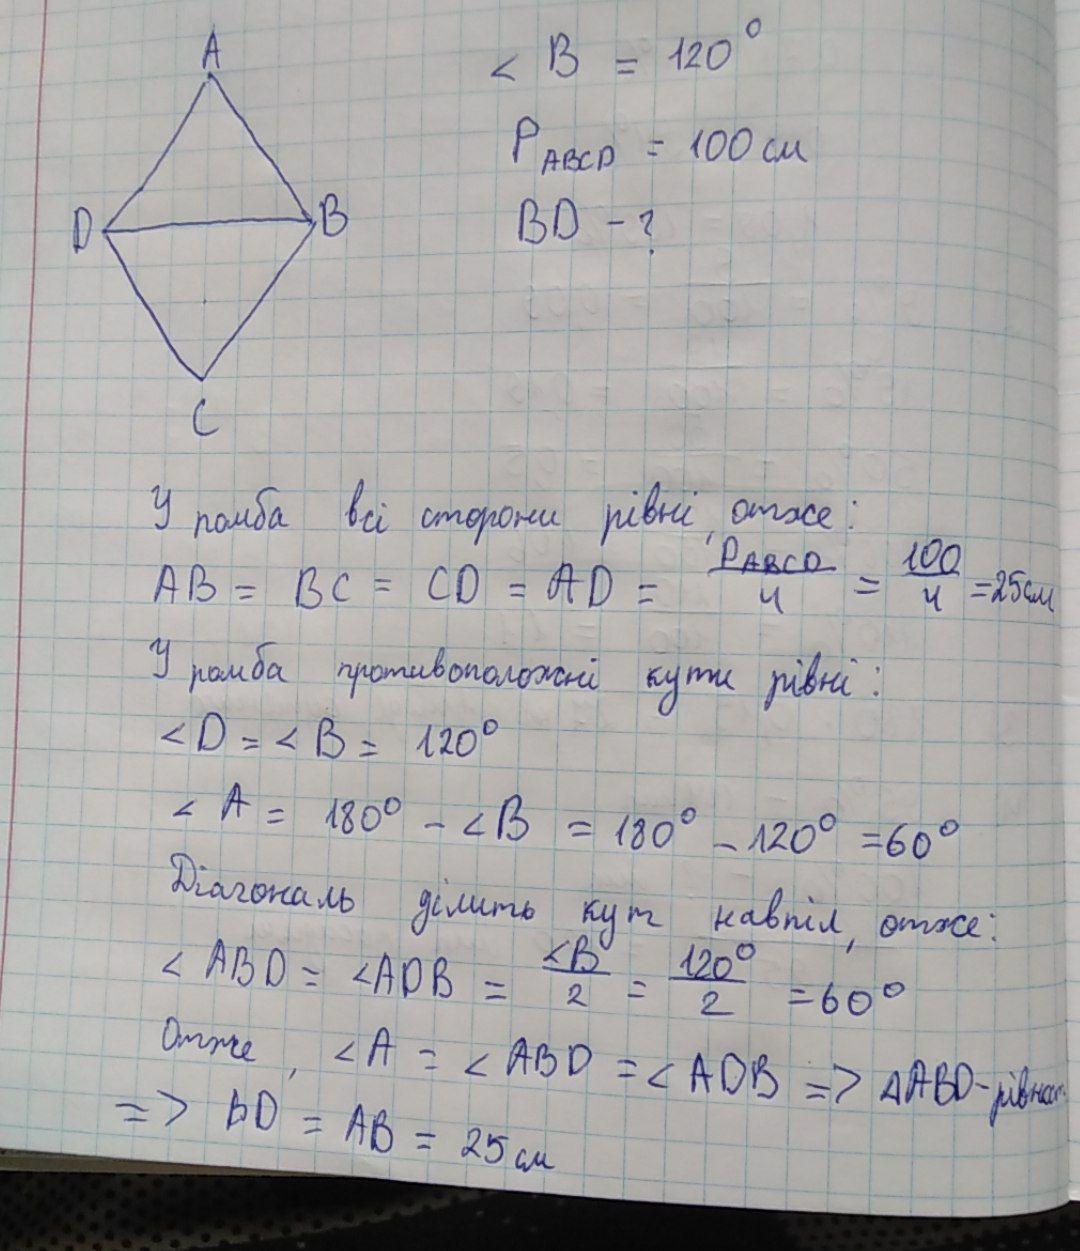 A
D
B
C
∠ B = 120°
P ABCD = 100 см
BD - ?
У ромба всі сторони рівні, отже:
AB = BC = CD = AD = P ABCD / 4 = 100 / 4 = 25 см
У ромба противоположні кути рівні:
∠D = ∠B = 120°
∠A = 180° - ∠B = 180° - 120° = 60°
Діагональ ділить кут навпіл, отже:
∠ABD = ∠ADB = ∠B / 2 = 120° / 2 = 60°
Отже, ∠A = ∠ABD = ∠ADB => ΔABD - рівност.
=> BD = AB = 25 см